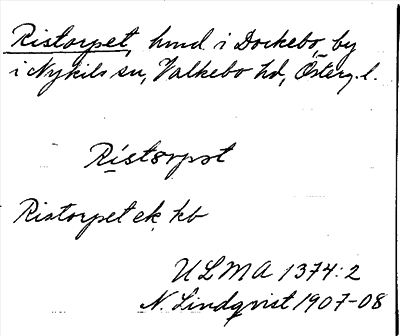 Ristorpet, hmd i Dockebo, by
i Nykils sn, Valkebo hd, Österg. l.
Ristorpet ek. kb
ULMA 1374:2
N. Lindqvist 1907-08